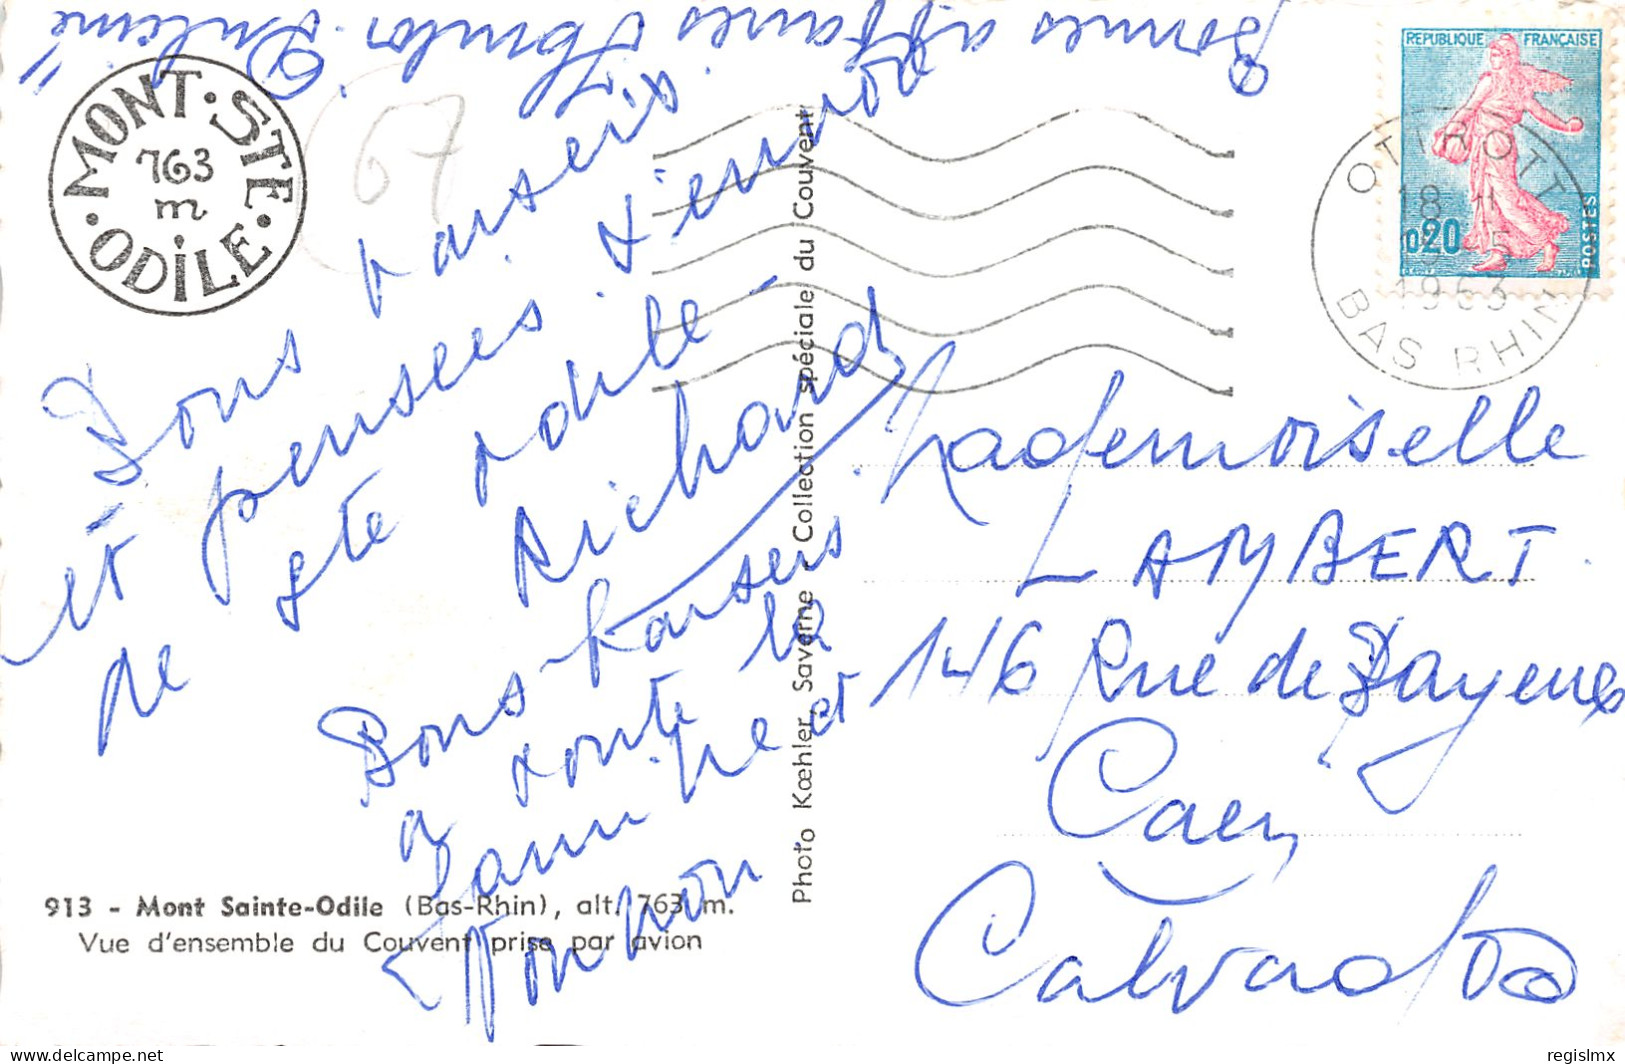 Bonnes affaires
MONT·STE·ODILE·
763
m
67
RÉPUBLIQUE FRANÇAISE
0,20
POSTES
OTTROTT
18 H
1963
BAS RHIN
Bons baisers
et pensées d'ennoé
de Ste Odile
Richard
Bons baisers
a toute la
famille et
Mademoiselle
LAMBERT
146 Rue de Bayeux
Caen
Calvados
913 - Mont Sainte-Odile (Bas-Rhin), alt. 763 m.
Vue d'ensemble du Couvent prise par avion
Photo Kœhler, Saverne Collection spéciale du Couvent
regislmx
https://www.delcampe.net